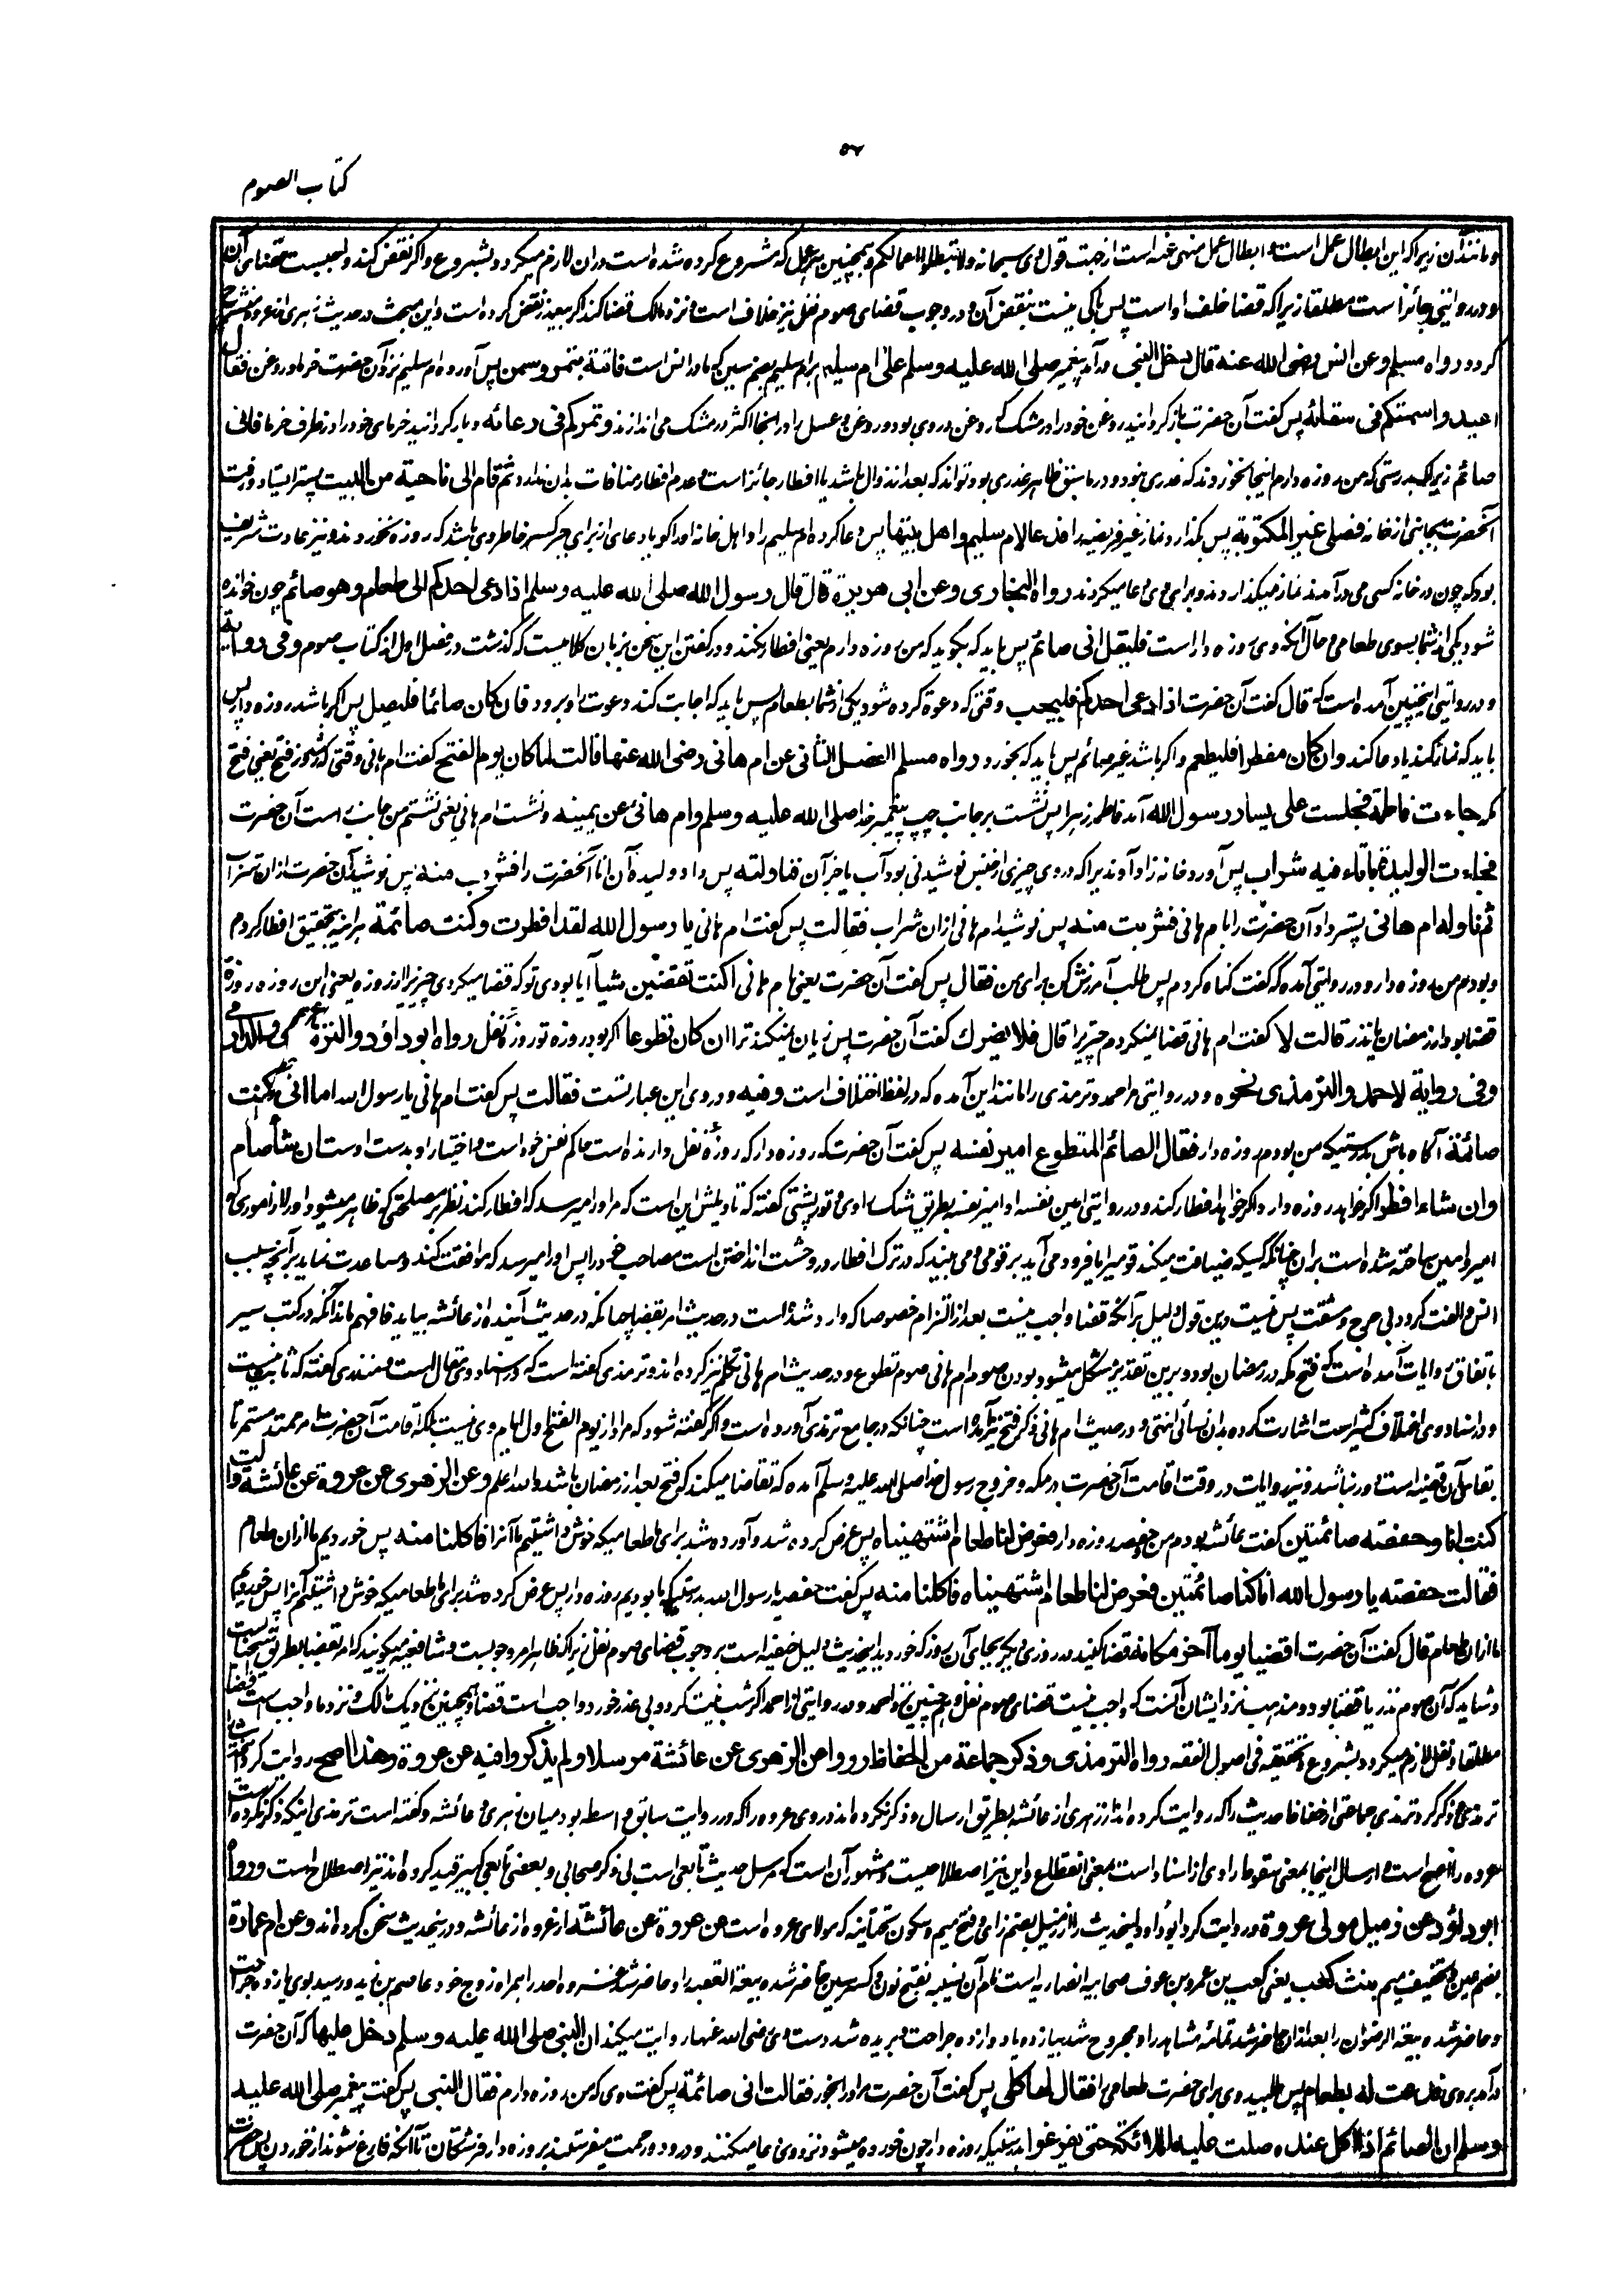 ٥٦
کتاب الصوم
ومانند آن زیراکه این ابطال عمل است و ابطال عمل منهی عنه است از جهت قول وی سبحانه ولا تبطلوا اعمالکم وهمچنین هر عمل که مشروع کرده شده است دران لازم میگردد بشروع واگر نقض کند واجبست قضای آن
ودر روایتی جائز است مطلقا زیراکه قضا خلف اواست پس باکی نیست بنقض آن ودر وجوب قضای صوم نفل نیز خلاف است ونزد مالک قضا کند اگر بی عذر نقض کرده است واین مبحث در حدیث زهری از عروه مشرح
گردد رواه مسلم وعن انس رضی الله عنه قال دخل النبی درآمد پیغمبر صلی الله علیه وسلم علی ام سلیم برام سلیم بضم سین که مادر انس است فاتته بتمر وسمن پس آورد ام سلیم نزد آن حضرت خرما وروغن فقال
اعیدوا سمنکم فی سقائه پس گفت آن حضرت بازگردانید روغن خود را در مشک که روغن دروی بود وروغن وعسل را در آنجا اکثر در مشک می اندازند وتمرکم فی وعائه وبازگردانید خرمای خود را در ظرف خرما فانی
صائم زیراکه بدرستی که من روزه دارم اینجا نخوردند که عذری نبود ودر ماسبق ظاهر عذری بود وتواند که بعد از زوال باشد یا افطار جائز است وعدم افطار منافات بدان ندارد ثم قام الی ناحیة من البیت پستر ایستاد ورفت
آنحضرت بجانبی از خانه فصلی غیر المکتوبة پس بگذارد نماز غیر فریضه را فدعا لام سلیم واهل بیتها پس دعا کرد ام سلیم را واهل خانه او را گویا دعای از برای جبر کسر خاطر وی باشد که روزه نخوردند ونیز عادت شریف
بود که چون در خانه کسی می درآمدند نماز میگذاردند وبرای وی دعا میکردند رواه البخاری وعن ابی هریرة قال قال رسول الله صلی الله علیه وسلم اذا دعی احدکم الی طعام وهو صائم چون خوانده
شود یکی از شما بسوی طعامی وحال آنکه وی روزه دار است فلیقل انی صائم پس باید که بگوید که من روزه دارم یعنی افطار نکند ودر گفتن این سخن بزبان کلامیست که گذشت در فصل اول از کتاب صوم وفی روایة
ودر روایتی اینچنین آمده است که قال گفت آن حضرت اذا دعی احدکم فلیجب وقتی که دعوة کرده شود یکی از شما بطعام پس باید که اجابت کند دعوت او برود فان کان صائما فلیصل پس اگر باشد روزه دار پس
باید که نماز کند یا دعا کند وان کان مفطرا فلیطعم واگر باشد غیر صائم پس باید که بخورد رواه مسلم الفصل الثانی عن ام هانی رضی الله عنها قالت لما کان یوم الفتح گفت ام هانی وقتی که شد روز فتح یعنی فتح
مکه جاءت فاطمة فجلست علی یسار رسول الله آمد فاطمه زهرا پس نشست برجانب چپ پیغمبر خدا صلی الله علیه وسلم وام هانئ عن یمینه ونشست ام هانی یعنی نشستم من جانب راست آن حضرت
فجاءت الولیدة باناء فیه شراب پس آورد خانه زاد آوندیراکه دروی چیزی از جنس نوشیدنی بود آب یا خبر آن فناولته پس داد ولیده آن اناء آنحضرت را فشرب منه پس نوشید آن حضرت ازان شراب
ثم ناوله ام هانی پستر داد آن حضرت را بام هانی فشربت منه پس نوشید ام هانی ازان شراب فقالت پس گفت ام هانی یا رسول الله لقد افطرت وکنت صائمة هرآینه بتحقیق افطار کردم
وبودم من روزه دار ودر روایتی آمده که گفت گناه کردم پس طلب آمرزش کن برای من فقال پس گفت آن حضرت یعنی بام هانی اکنت تقضین شیأ آیا بودی تو که قضا میکردی چیزیرا از روزه یعنی این روزه روزهٔ
قضا بود از رمضان یا نذر قالت لا گفت ام هانی قضا نمیکردم چیزیرا قال فلا یضرك گفت آن حضرت پس زیان نمیکند ترا ان کان تطوعا اگر بود روزه تو روزهٔ نفل رواه ابو داؤد والترمذی والدارمی
وفی روایة لاحمد والترمذی نحوه ودر روایتی مر احمد وترمذی را مانند این آمده که در لفظ اختلاف است وفیه ودروی این عبارتست فقالت پس گفت ام هانی یا رسول الله اما انی کنت
صائمة آگاه باش بدرستیکه من بودم روزه دار فقال الصائم المتطوع امیر نفسه پس گفت آن حضرت که روزه دار که روزهٔ نفل دارنده است حاکم نفس خود است واختیار او بدست اوست ان شاء صام
وان شاء افطر اگر خواهد روزه دارد واگر خواهد افطار کند ودر روایتی امین نفسه او امیر نفسه بطریق شک راوی وتورپشتی گفته که تاویلش این است که مراورا میرسد که افطار کند نظر بر مصلحتی که ظاهر میشود اورا از اموری که
امیر وامین ساخته شده است بران چنانکه کسیکه ضیافت میکند قومیرا یا فرود می آید برقومی ومی بیند که در ترک افطار وحشت انداختن است مصاحب خود را پس اورا میرسد که موافقت کند ومساعدت نماید برآنچه سبب
انس والفت گردد بی حرج ومشقت پس نیست درین قول دلیل برآنکه قضا واجب نیست بعد از التزام خصوصا که وارد شده است در حدیث امر بقضا چنانکه در حدیث آینده از عائشه بیاید فافهم بدانکه در کتب سیر
باتفاق روایات آمده است که فتح مکه در رمضان بود وبرین تقدیر مشکل میشود بودن صوم ام هانی صوم تطوع ودر حدیث ام هانی تکلم نیز کرده اند وترمذی گفته است که در اسناد وی مقال است ومنذری گفته که ثابت نیست
ودر اسناد وی اختلاف کثیر است اشارت کرده بدان نسائی انتهی ودر حدیث ام هانی ذکر فتح نیز آمده است چنانکه در جامع ترمذی آورده است واگر گفته شود که مراد از یوم الفتح اول ایام وی نیست بلکه اقامت آن حضرت مر مدت مستمر تا
بقاء آن قضیه است دور نباشد ونیز روایات در وقت اقامت آن حضرت در مکه وخروج رسول خدا صلی الله علیه وسلم آمده که تقاضا میکند که فتح بعد از رمضان باشد والله اعلم وعن الزهری عن عروة عن عائشة قالت
کنت انا وحفصة صائمتین گفت عائشه بودم من وحفصه روزه دار فعرض لنا طعام اشتهیناه پس عرض کرده شد وآورده شد برای ما طعامیکه خوش داشتیم ما آنرا فاکلنا منه پس خوردیم ما ازان طعام
فقالت حفصة یا رسول الله انا کنا صائمتین فعرض لنا طعام اشتهیناه فاکلنا منه پس گفت حفصه یا رسول الله بدرستیکه ما بودیم روزه دار پس عرض کرده شد برای ما طعامیکه خوش داشتیم آنرا پس خوردیم
ما ازان طعام قال گفت آن حضرت اقضیا یوما آخر مکانه قضا کنید در روزی دیگر بجای آن روز که خوردید این حدیث دلیل حنفیه است بر وجوب قضای صوم نفل زیراکه ظاهر امر وجوبست وشافعیه میگویند که امر بقضا بطریق استحبابست
وشاید که آن صوم نذر یا قضا بود ومذهب نزد ایشان آنست که واجب نیست قضای صوم نفل وهمچنین نزد احمد ودر روایتی از احمد اگر شب نیت کرد وبی عذر خورد واجب است قضا وهمچنین نزدیک مالک ونزد ما واجب است قضا
مطلقا ونفل لازم میگردد بشروع وتحقیقه فی اصول الفقه رواه الترمذی وذکر جماعة من الحفاظ رووا عن الزهری عن عائشة مرسلا ولم یذکروا فیه عن عروة وهذا اصح روایت کرد این حدیث را
ترمذی وذکر کرد ترمذی جماعتی از حفاظ حدیث را که روایت کرده اند از زهری از عائشه بطریق ارسال وذکر نکرده اند دروی عروه را که در روایت سابق واسطه بود میان زهری وعائشه وگفته است ترمذی اینکه ذکر نکرده است
عروه را اصح است وارسال اینجا بمعنی سقوط راوی از اسناد است بمعنی انقطاع واین نیز اصطلاحیست ومشهور آن است که مرسل حدیث تابعی است بی ذکر صحابی وبعضی تابعی کبیر قید کرده اند نیز اصطلاح است ورواه
ابو داؤد عن زمیل مولی عروة وروایت کرد ابو داود این حدیث را از زمیل بضم زای وفتح میم وسکون تحتانیه که مولای عروه است عن عروة عن عائشة از عروه از عائشه ودرین حدیث سخن کرده اند وعن ام عمارة
بضم عین وتخفیف میم بنت کعب یعنی کعب بن عمرو بن عوف صحابیه انصاریه است نام آن نسیبه بفتح نون وکسر سین حاضر شده بیعة العقبه را وحاضر شد غزوه احد را همراه زوج خود عاصم بن زید ورسید بوی یازده جراحت
وحاضر شده بیعة الرضوان را بعد ازان حاضر شد تمامه مشاهد را ومجروح شد بیازده یا دوازده جراحت وبریده شد دست وی رضی الله عنها روایت میکند ان النبی صلی الله علیه وسلم دخل علیها که آن حضرت
درآمد بروی فدعت له بطعام پس طلبید وی برای حضرت طعامی را فقال لها کلی پس گفت آن حضرت مراورا بخور فقالت انی صائمة پس گفت وی که من روزه دارم فقال النبی پس گفت پیغمبر صلی الله علیه
وسلم ان الصائم اذا اکل عنده صلت علیه الملائکة حتی یفرغوا بدرستیکه روزه دار چون خورده میشود نزد وی دعا میکنند ودرود ورحمت میفرستند بر روزه دار فرشتگان تا آنکه فارغ شوند از خوردن